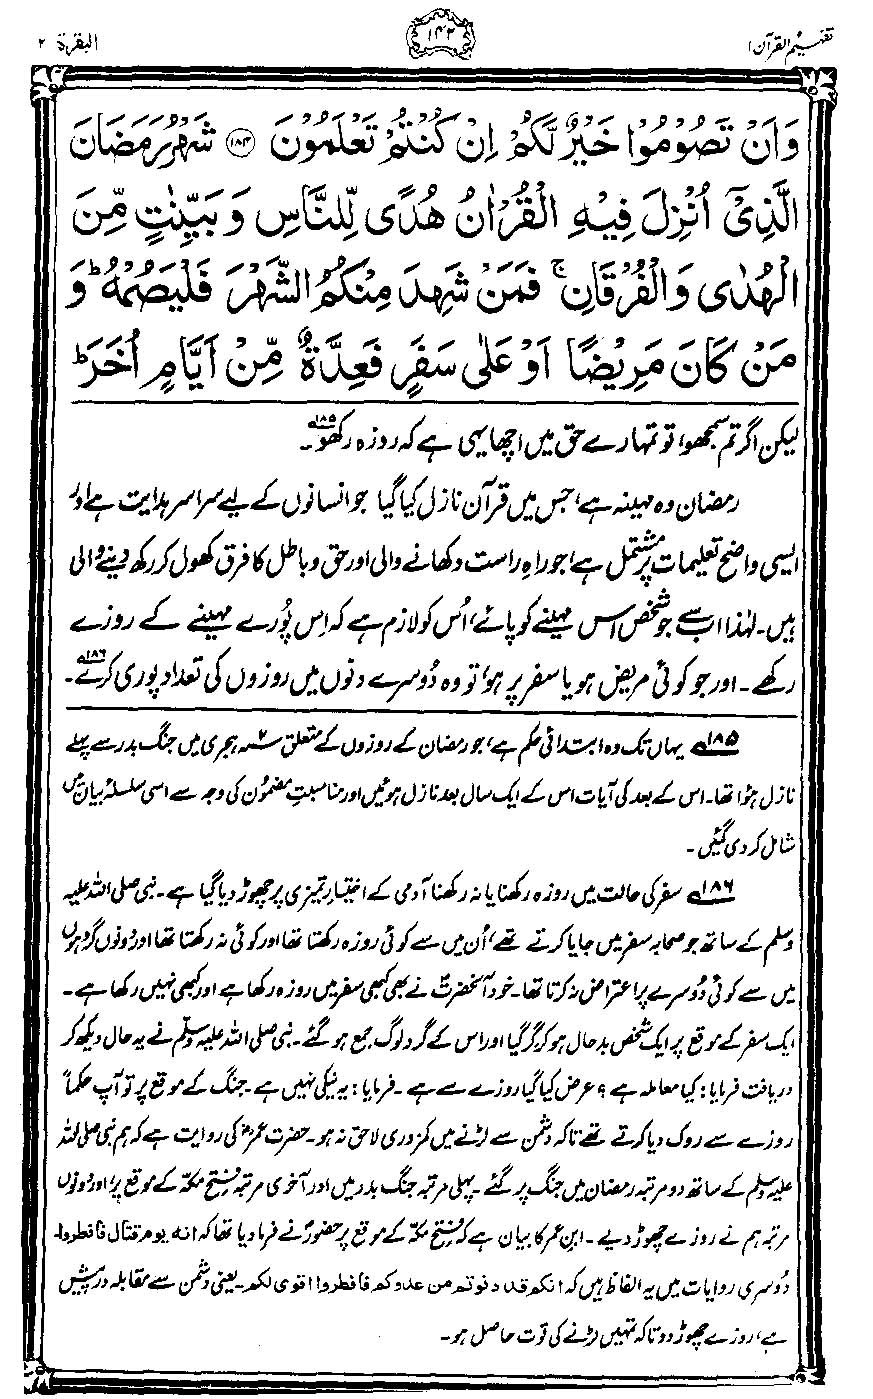 تفہیم القرآن ۱
۱۴۲
البقرۃ ۲
وَاَنْ تَصُوْمُوْا خَيْرٌ لَّكُمْ اِنْ كُنْتُمْ تَعْلَمُوْنَ ﴿۱۸۴﴾ شَهْرُ رَمَضَانَ
الَّذِيْٓ اُنْزِلَ فِيْهِ الْقُرْاٰنُ هُدًى لِّلنَّاسِ وَ بَيِّنٰتٍ مِّنَ
الْهُدٰى وَالْفُرْقَانِ ۚ فَمَنْ شَهِدَ مِنْكُمُ الشَّهْرَ فَلْيَصُمْهُ ؕ وَ
مَنْ كَانَ مَرِيْضًا اَوْ عَلٰى سَفَرٍ فَعِدَّةٌ مِّنْ اَيَّامٍ اُخَرَ ؕ
لیکن اگر تم سمجھو، تو تمہارے حق میں اچھا یہی ہے کہ روزہ رکھو۱۸۵۔
رمضان وہ مہینہ ہے، جس میں قرآن نازل کیا گیا جو انسانوں کے لیے سراسر ہدایت ہے اور
ایسی واضح تعلیمات پر مشتمل ہے، جو راہِ راست دکھانے والی اور حق و باطل کا فرق کھول کر رکھ دینے والی
ہیں۔ لہٰذا اب سے جو شخص اس مہینے کو پائے، اُس کو لازم ہے کہ اِس پُورے مہینے کے روزے
رکھے۔ اور جو کوئی مریض ہو یا سفر پر ہو، تو وہ دُوسرے دنوں میں روزوں کی تعداد پوری کرے۱۸۶۔
۱۸۵ یہاں تک وہ ابتدائی حکم ہے، جو رمضان کے روزوں کے متعلق ۲ سنہ ہجری میں جنگ بدر سے پہلے
نازل ہوا تھا۔ اس کے بعد کی آیات اس کے ایک سال بعد نازل ہوئیں اور مناسبتِ مضمُون کی وجہ سے اسی سلسلۂ بیان میں
شامل کر دی گئیں۔
۱۸۶ سفر کی حالت میں روزہ رکھنا یا نہ رکھنا آدمی کے اختیارِ تمیزی پر چھوڑ دیا گیا ہے۔ نبی صلی اللہ علیہ
وسلم کے ساتھ جو صحابہ سفر میں جایا کرتے تھے، اُن میں سے کوئی روزہ رکھتا تھا اور کوئی نہ رکھتا تھا اور دونوں گروہوں
میں سے کوئی دُوسرے پر اعتراض نہ کرتا تھا۔ خود آنحضرتؐ نے بھی کبھی سفر میں روزہ رکھا ہے اور کبھی نہیں رکھا ہے۔
ایک سفر کے موقع پر ایک شخص بدحال ہو کر گر گیا اور اس کے گرد لوگ جمع ہو گئے۔ نبی صلی اللہ علیہ وسلم نے یہ حال دیکھ کر
دریافت فرمایا: کیا معاملہ ہے؟ عرض کیا گیا روزے سے ہے۔ فرمایا: یہ نیکی نہیں ہے۔ جنگ کے موقع پر تو آپ حکماً
روزے سے روک دیا کرتے تھے تاکہ دشمن سے لڑنے میں کمزوری لاحق نہ ہو۔ حضرت عمرؓ کی روایت ہے کہ ہم نبی صلی اللہ
علیہ وسلم کے ساتھ دو مرتبہ رمضان میں جنگ پر گئے۔ پہلی مرتبہ جنگ بدر میں اور آخری مرتبہ فتح مکہ کے موقع پر، اور دونوں
مرتبہ ہم نے روزے چھوڑ دیے۔ ابن عمر کا بیان ہے کہ فتح مکہ کے موقع پر حضورؐ نے فرما دیا تھا کہ انہ یوم قتال فافطروا۔
دُوسری روایات میں یہ الفاظ ہیں کہ انکم قد دنوتم من عدوکم فافطروا اقوی لکم۔ یعنی دشمن سے مقابلہ درپیش
ہے، روزے چھوڑ دو تاکہ تمہیں لڑنے کی قوت حاصل ہو۔